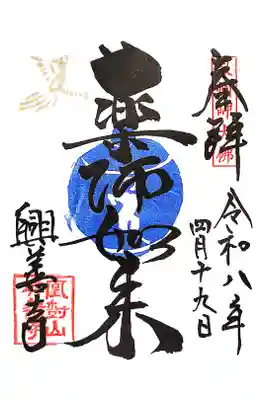 奉拝
令和八年
四月十九日
薬師如来
興善寺
鳳樹山